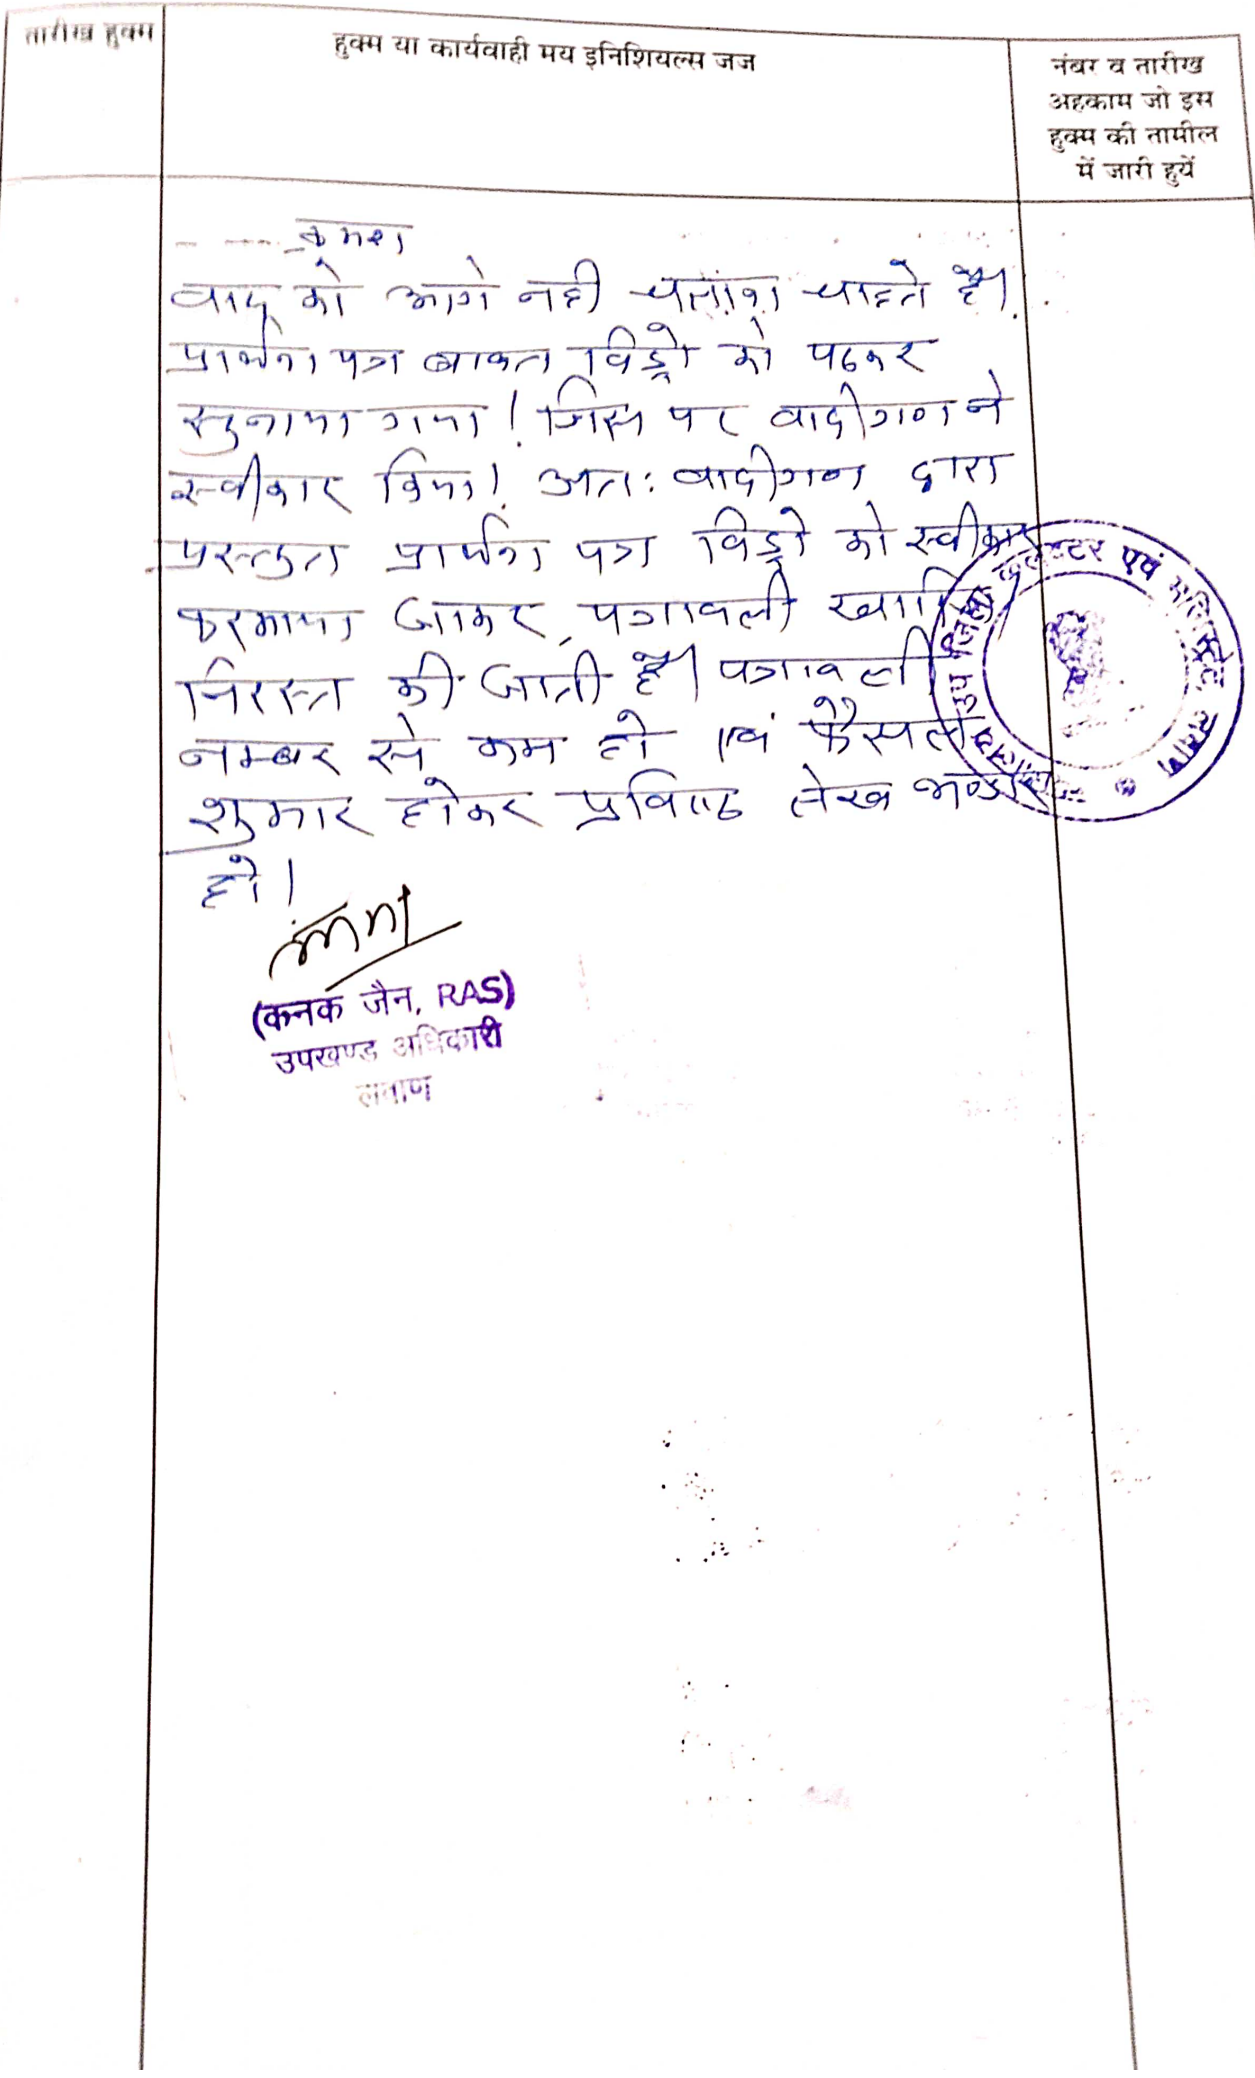 तारीख हुक्म
हुक्म या कार्यवाही मय इनिशियल्स जज
नंबर व तारीख
अहकाम जो इस
हुक्म की तामील
में जारी हुयें
क्रमश
वाद को आगे नही चलाना चाहते है।
प्रार्थना पत्र बाबत विड्रो को पढकर
सुनाया गया। जिस पर वादीगण ने
स्वीकार किया। अतः वादीगण द्वारा
प्रस्तुत प्रार्थना पत्र विड्रो को स्वीकार
फरमाया जाकर, पत्रावली खारिज
निरस्त की जाती है। पत्रावली
नम्बर से कम हो एवं फैसल
शुमार होकर प्रविष्ठ लेख भण्डार
हो।
(कनक जैन, RAS)
उपखण्ड अधिकारी
लवाण
उप जिला कलक्टर एवं मजिस्ट्रेट, लवाण